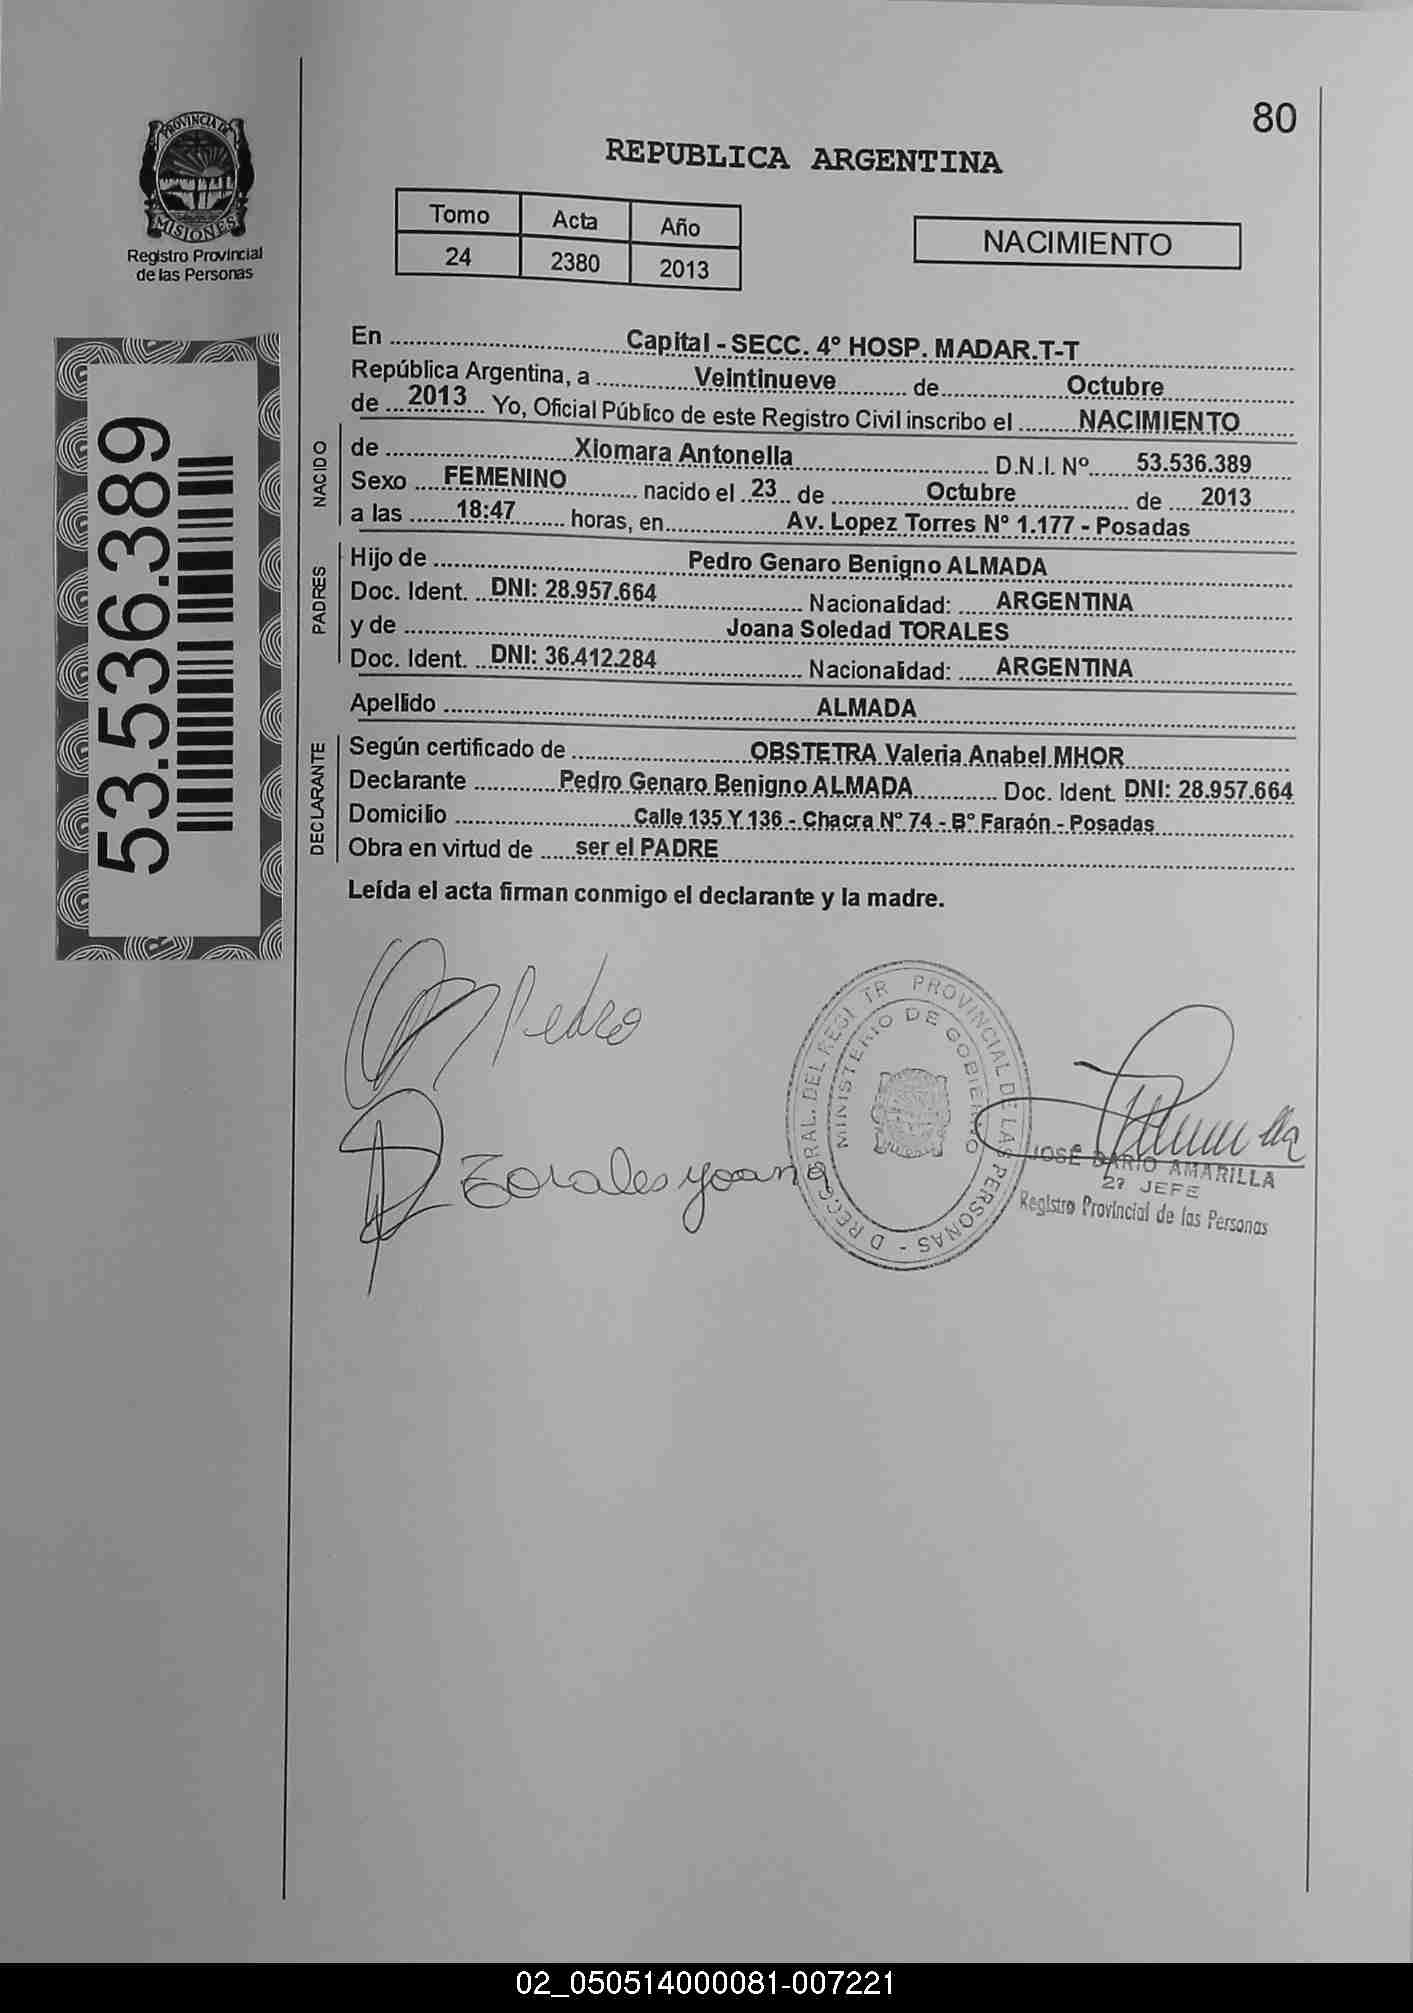 80
PROVINCIA DE
MISIONES
Registro Provincial
de las Personas
REPUBLICA ARGENTINA
Tomo Acta Año
24 2380 2013
NACIMIENTO
53.536.389
En Capital - SECC. 4° HOSP. MADAR.T-T
República Argentina, a Veintinueve de Octubre
de 2013 Yo, Oficial Público de este Registro Civil inscribo el NACIMIENTO
NACIDO
de Xiomara Antonella D.N.I. Nº 53.536.389
Sexo FEMENINO nacido el 23 de Octubre de 2013
a las 18:47 horas, en Av. Lopez Torres Nº 1.177 - Posadas
PADRES
Hijo de Pedro Genaro Benigno ALMADA
Doc. Ident. DNI: 28.957.664 Nacionalidad: ARGENTINA
y de Joana Soledad TORALES
Doc. Ident. DNI: 36.412.284 Nacionalidad: ARGENTINA
Apellido ALMADA
DECLARANTE
Según certificado de OBSTETRA Valeria Anabel MHOR
Declarante Pedro Genaro Benigno ALMADA Doc. Ident. DNI: 28.957.664
Domicilio Calle 135 Y 136 - Chacra Nº 74 - Bº Faraón - Posadas
Obra en virtud de ser el PADRE
Leída el acta firman conmigo el declarante y la madre.
Pedro
Torales yoana
PROVINCIAL DE LAS PERSONAS
MINISTERIO DE GOBIERNO
JOSÉ DARIO AMARILLA
2º JEFE
Registro Provincial de las Personas
02_050514000081-007221